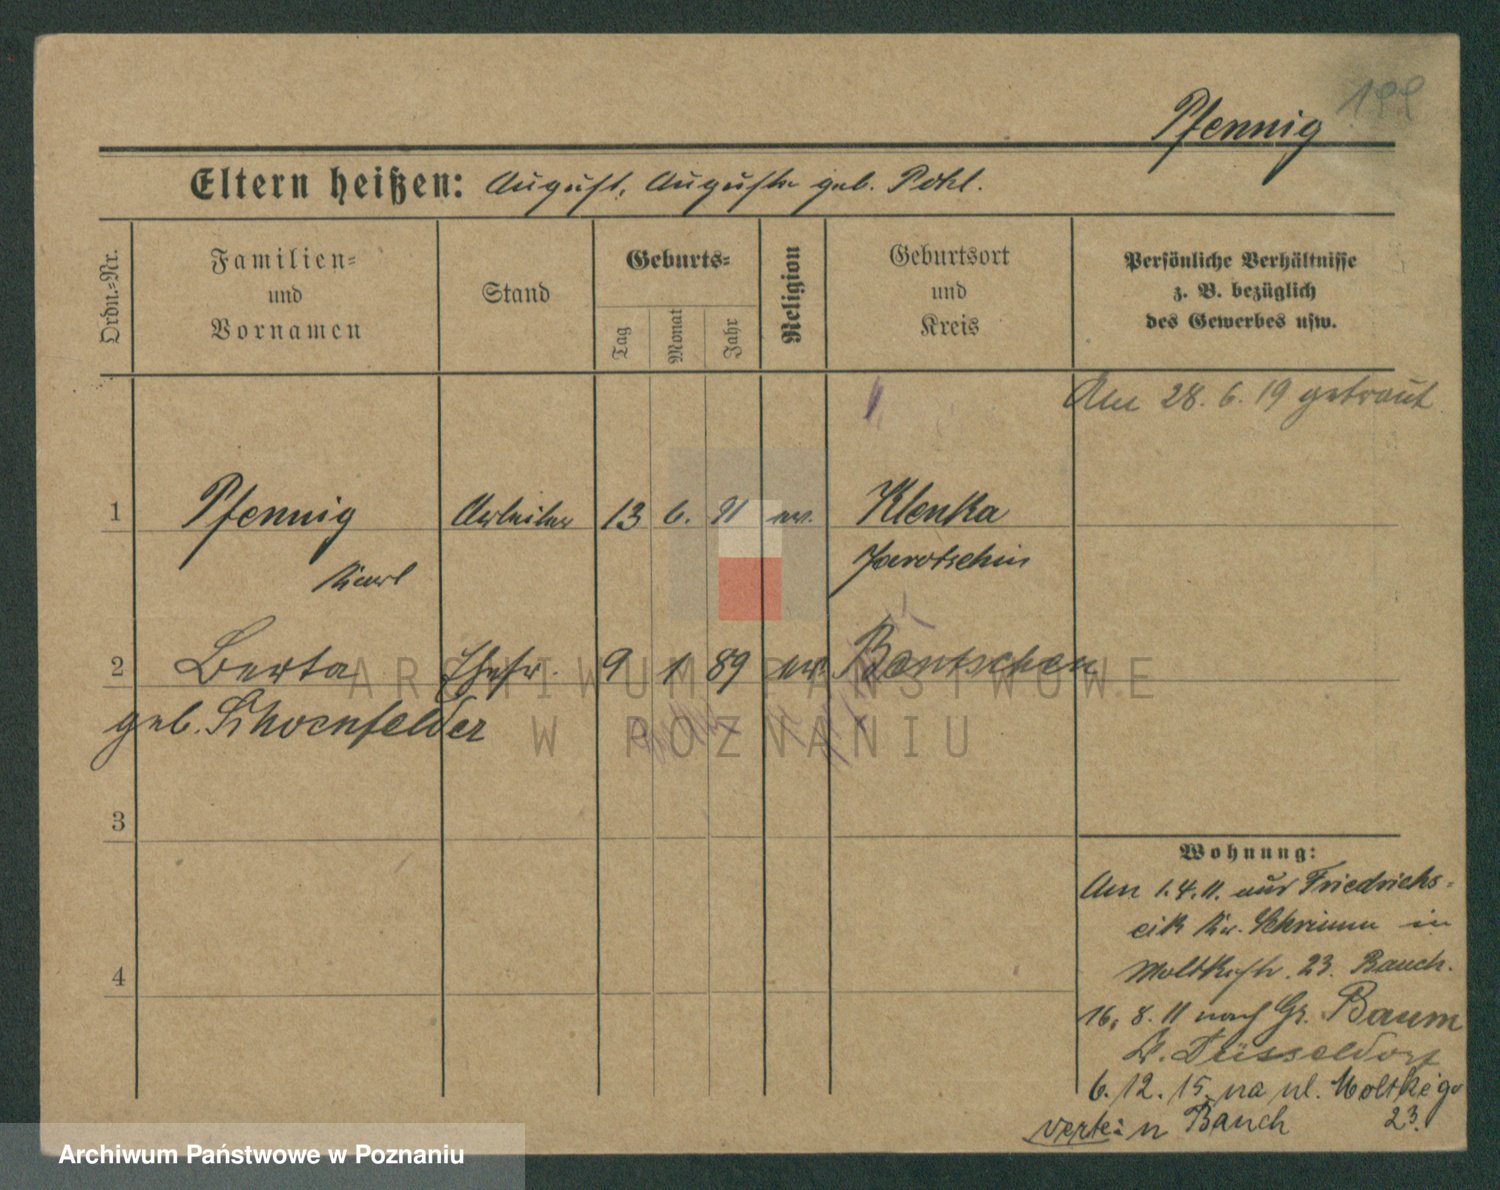 199
Pfennig
Eltern heißen: August, Auguste geb. Pohl.
Ordn.=Nr.
Familien=
und
Vornamen
Stand
Geburts=
Tag
Monat
Jahr
Religion
Geburtsort
und
Kreis
Persönliche Verhältnisse
z. B. bezüglich
des Gewerbes usw.
Am 28. 6. 19 getraut
1 Pfennig Arbeiter 13 6. 91 ev. Klenka
Karl Jarotschin
2 Berta Ehefr. 9 1 89 ev. Bentschen
geb. Schoenfelder
3
4
Wohnung:
Am 1.4.11. aus Friedrichs=
eik Kr. Schrimm in
Moltkestr. 23. Bauch.
16. 8. 11 nach Gr. Baum
Kr. Düsseldorf
6. 12. 15. na ul. Moltkego
23.
verte: u Bauch
ARCHIWUM PAŃSTWOWE
W POZNANIU
Archiwum Państwowe w Poznaniu